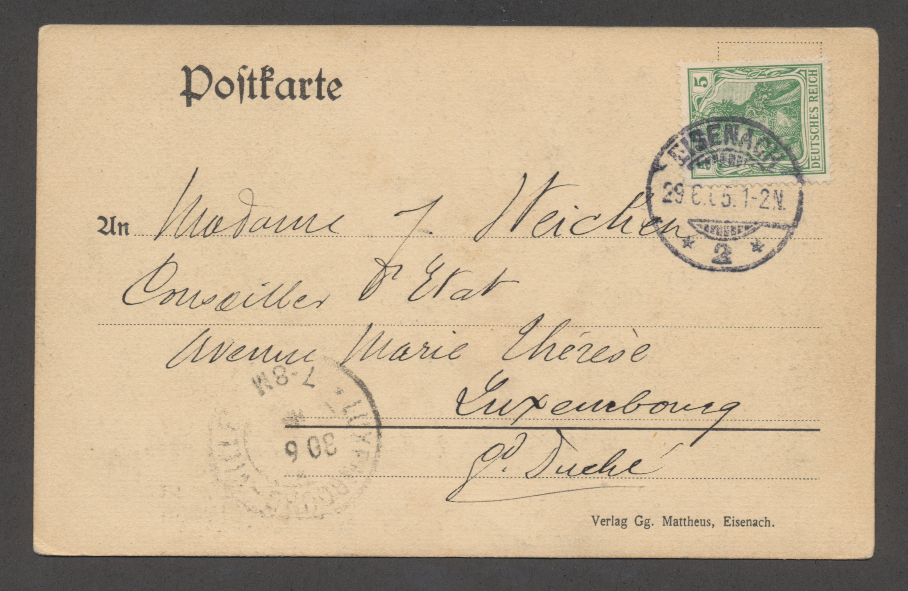 Postkarte
5
DEUTSCHES REICH
EISENACH
29.6.05.1-2N.
* 2 *
An Madame J. Weicker
Conseiller d'Etat
Avenue Marie Thérèse
Luxembourg
gd. Duché
7-8M
30 6
LUXEMBOURG
Verlag Gg. Mattheus, Eisenach.